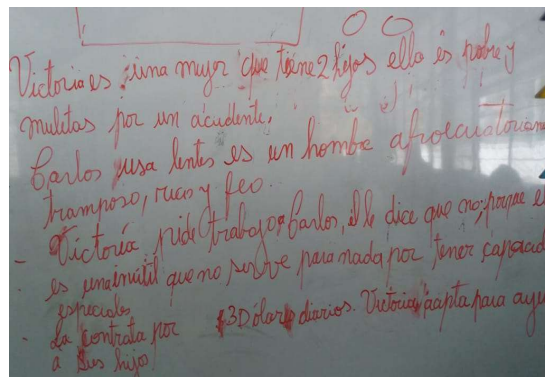 Victoria es una mujer que tiene 2 hijos ella es pobre y
muletas por un accidente.
Carlos usa lentes es un hombre afroecuatoriano
tramposo, rico y feo.
- Victoria pide trabajo a Carlos, él le dice que no, porque el
es una inútil que no sirve para nada por tener capacid
especiales
- La contrata por $3 Dolares diarios. Victoria acepta para ayu
a sus hijos